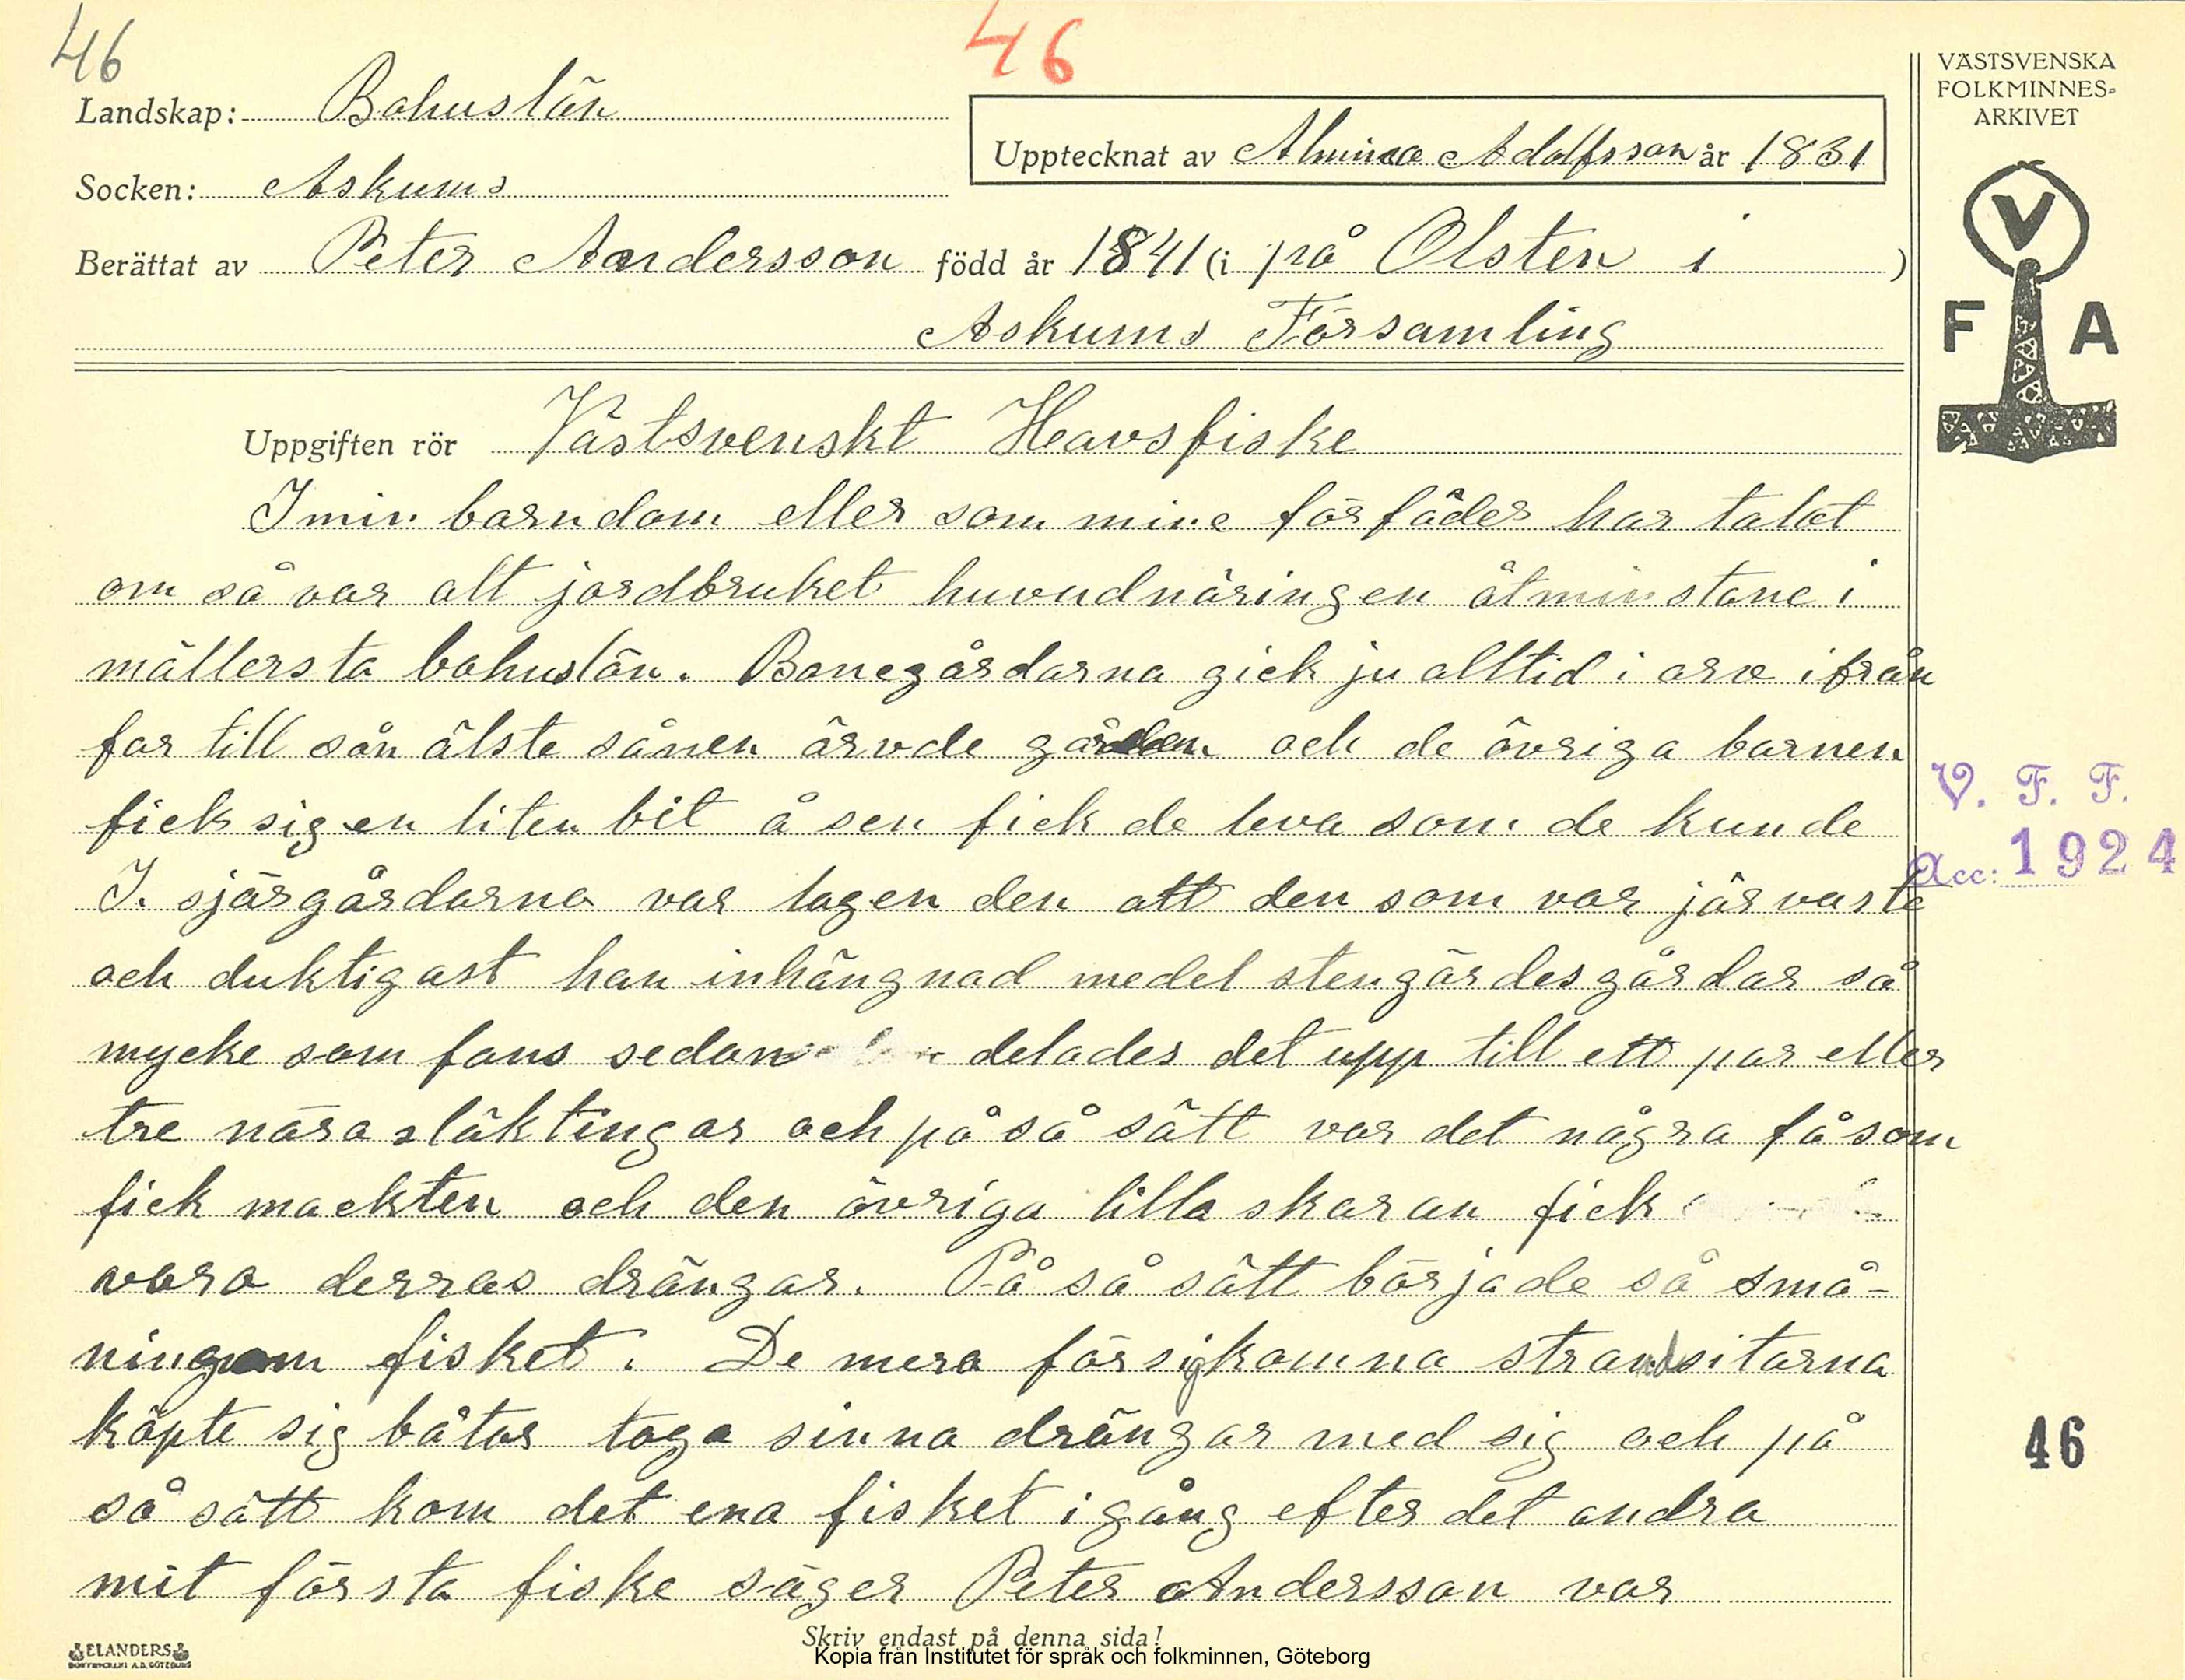 46
46
Landskap: Bohuslän
Upptecknat av Almina Adolfsson år 1831
Socken: Askums
Berättat av Peter Andersson född år 1841 (i på Olsten i )
Askums Församling
VÄSTSVENSKA
FOLKMINNES-
ARKIVET
V
F A
Uppgiften rör Västsvenskt Havsfiske
I min barndom eller som mine förfäder har talat
om så var alt jordbruket huvudnäringen åtminstone i
mällersta bohuslän. Bonegårdarna gick ju alltid i arv ifrån
far till sån älste sånen ärvde gården och de övriga barnen
fick sig en liten bit å sen fick de leva som de kunde
I. sjärgårdarna var lagen den att den som var järvaste
och duktigast han inhängnad medel stengärdesgårdar så
mycke som fans sedan delades det upp till ett par eller
tre nära släktingar och på så sätt var det några få som
fick mackten och den övriga lilla skaran fick
vara derras drängar. På så sätt började så små-
ningom fisket. De mera försigkomna strandsitarna
köpte sig båtar toga sinna drängar med sig och på
så sätt kom det ena fisket igång efter det andra
mit första fiske säger Peter Andersson var
V. F. F.
Acc: 1924
46
Skriv endast på denna sida!
ELANDERS
BOKTRYCKERI A.B. GÖTEBORG
Kopia från Institutet för språk och folkminnen, Göteborg